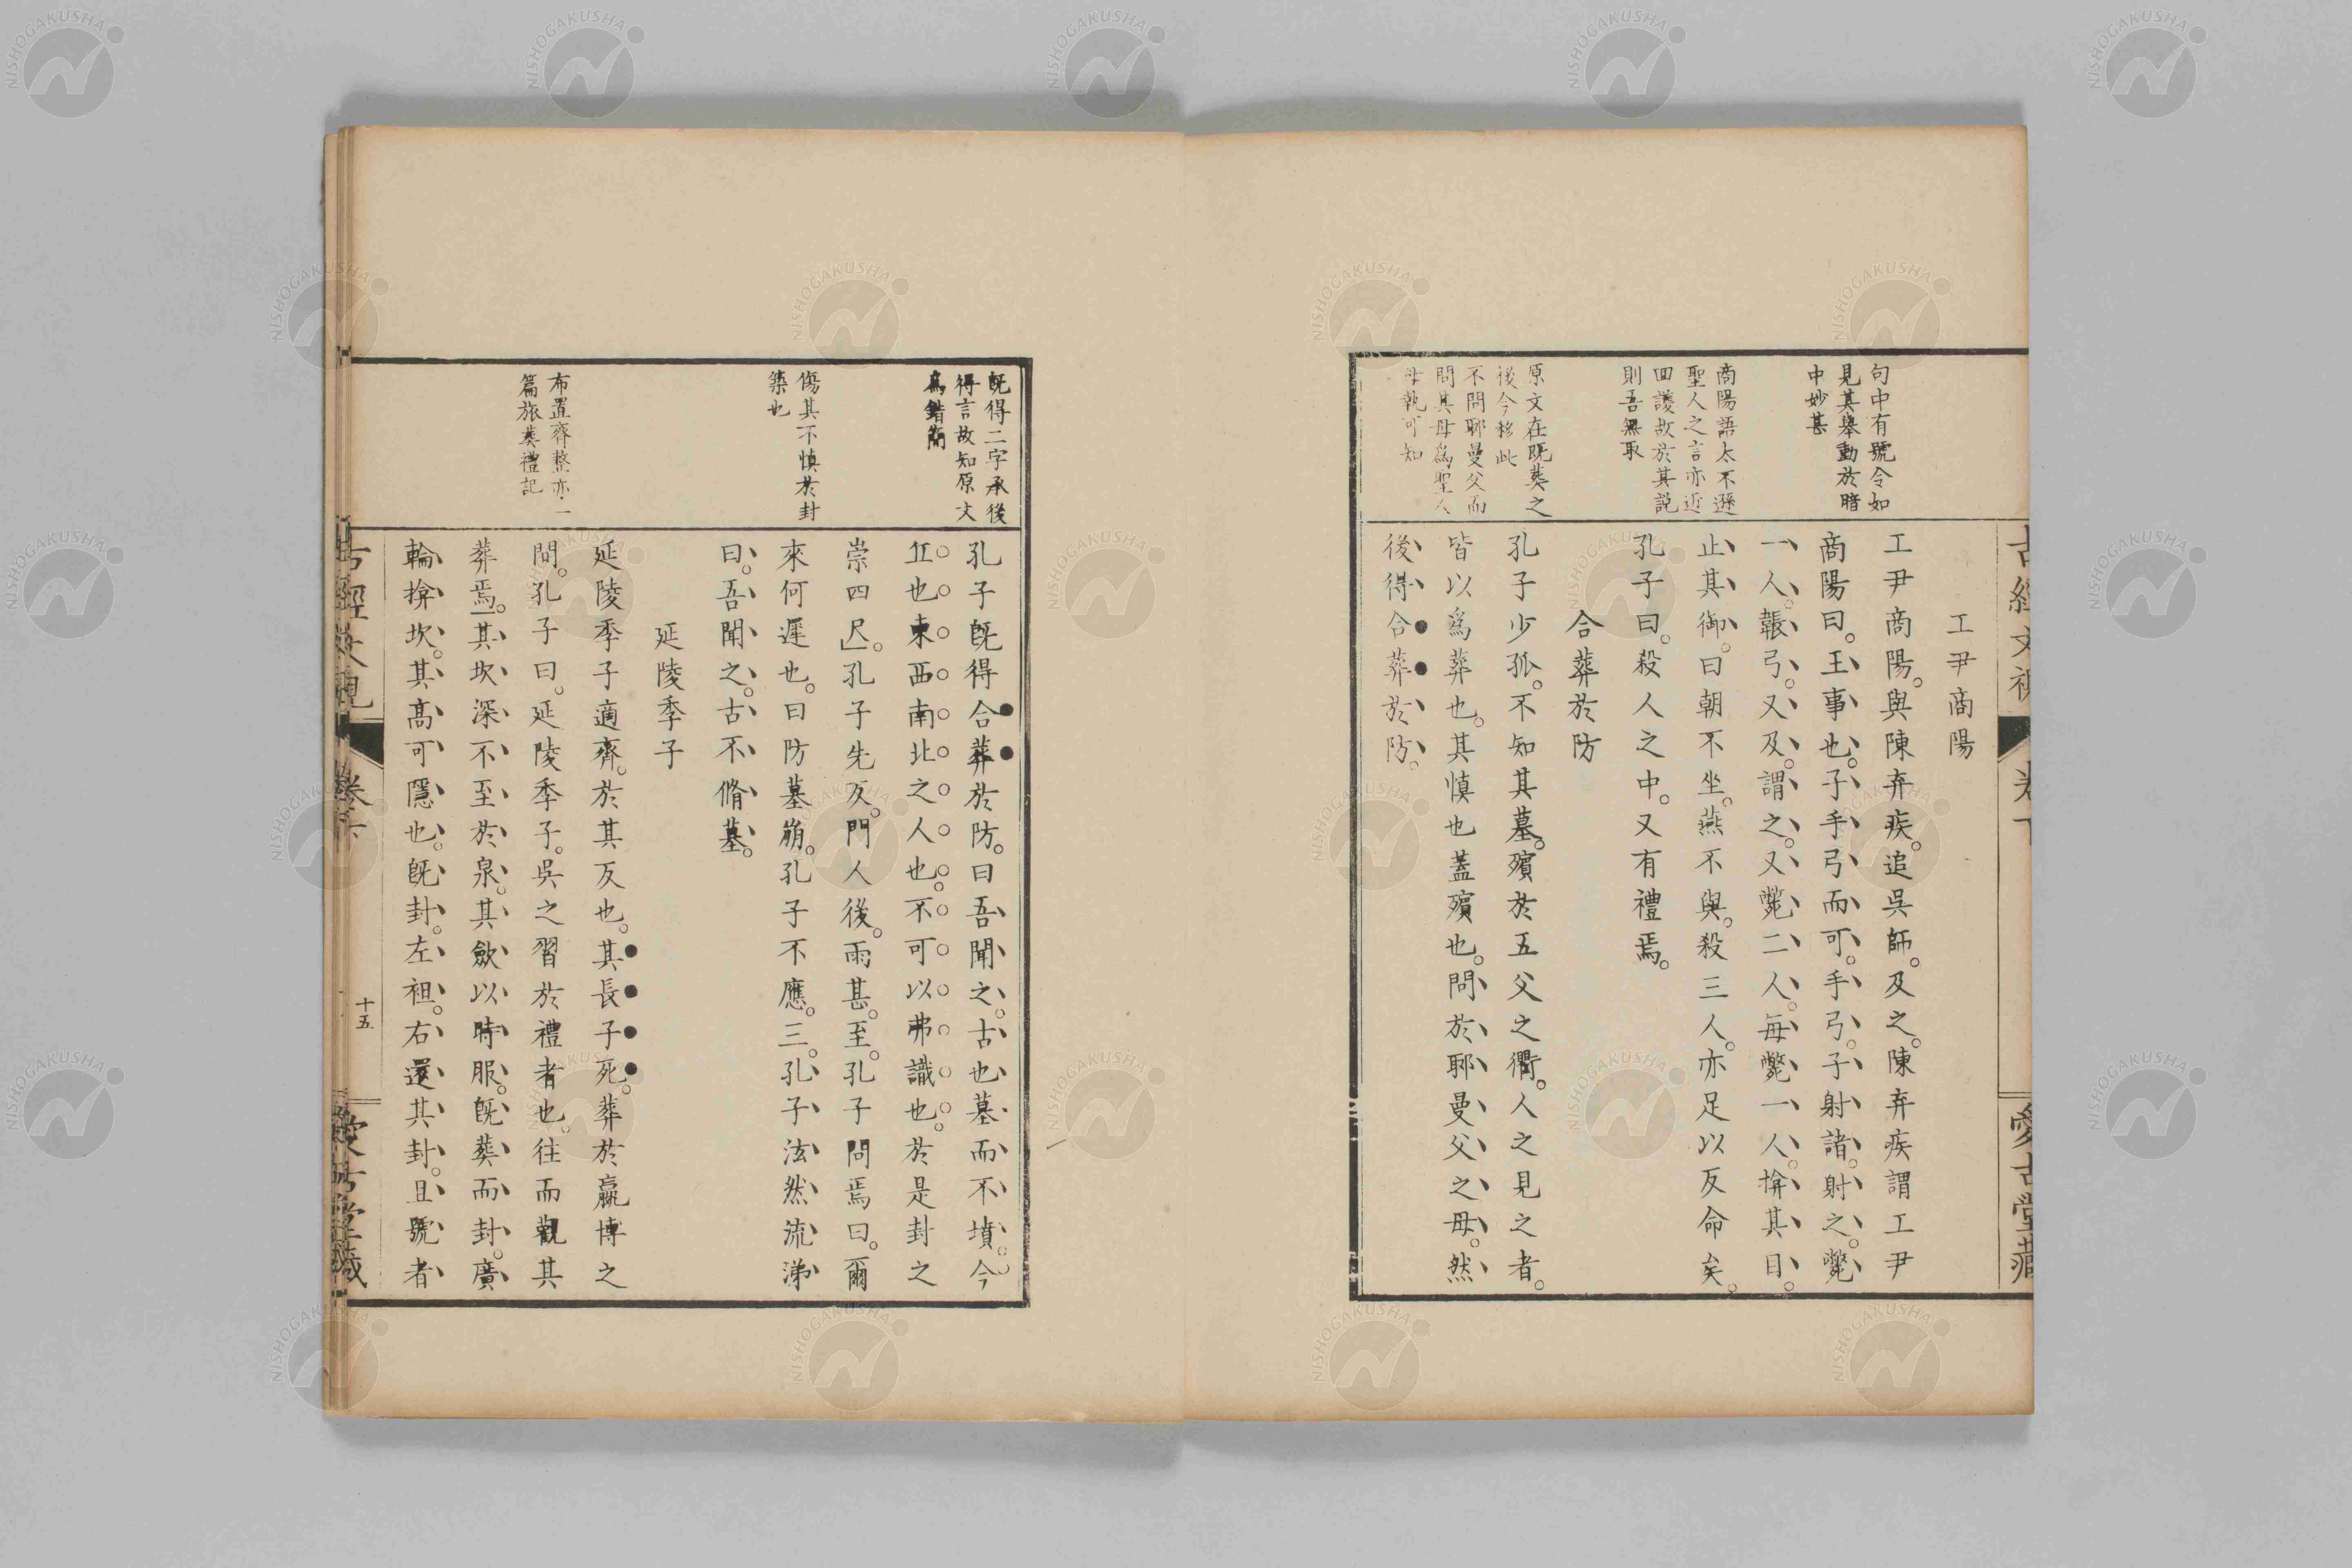 工尹商陽
工尹商陽。與陳弃疾。追吳師。及之。陳弃疾謂工尹
商陽曰。王事也。子手弓而可。手弓。子射諸。射之。斃
一人。韔弓。又及。謂之。又斃二人。每斃一人。揜其目。
止其御。曰朝不坐。燕不與。殺三人。亦足以反命矣。
孔子曰。殺人之中。又有禮焉。
合葬於防
孔子少孤。不知其墓。殯於五父之衢。人之見之者。
皆以爲葬也。其慎也蓋殯也。問於耶曼父之母。然
後得合葬於防。
句中有號令如
見其擧動於暗
中妙甚
商陽語太不遜
聖人之言亦近
四護故於其説
則吾無取
原文在既葬之
後今移此
不問耶曼父而
問其母爲聖人
母執可知
愛古堂藏
孔子既得合葬於防。曰吾聞之。古也墓而不墳。今
丘也東西南北之人也。不可以弗識也。於是封之
崇四尺」。孔子先反。門人後。雨甚。至。孔子問焉曰。爾
來何遲也。曰防墓崩。孔子不應。三。孔子泫然流涕
曰。吾聞之。古不脩墓。
延陵季子
延陵季子適齊。於其反也。其長子死。葬於嬴博之
間。孔子曰。延陵季子。吳之習於禮者也。往而觀其
葬焉」。其坎深不至於泉。其斂以時服。既葬而封。廣
輪揜坎。其高可隱也。既封。左袒。右還其封。且號者
既得二字承後
得言故知原文
爲錯簡
傷其不慎於封
築也
布置齊整亦一
篇旅葬禮記
十五